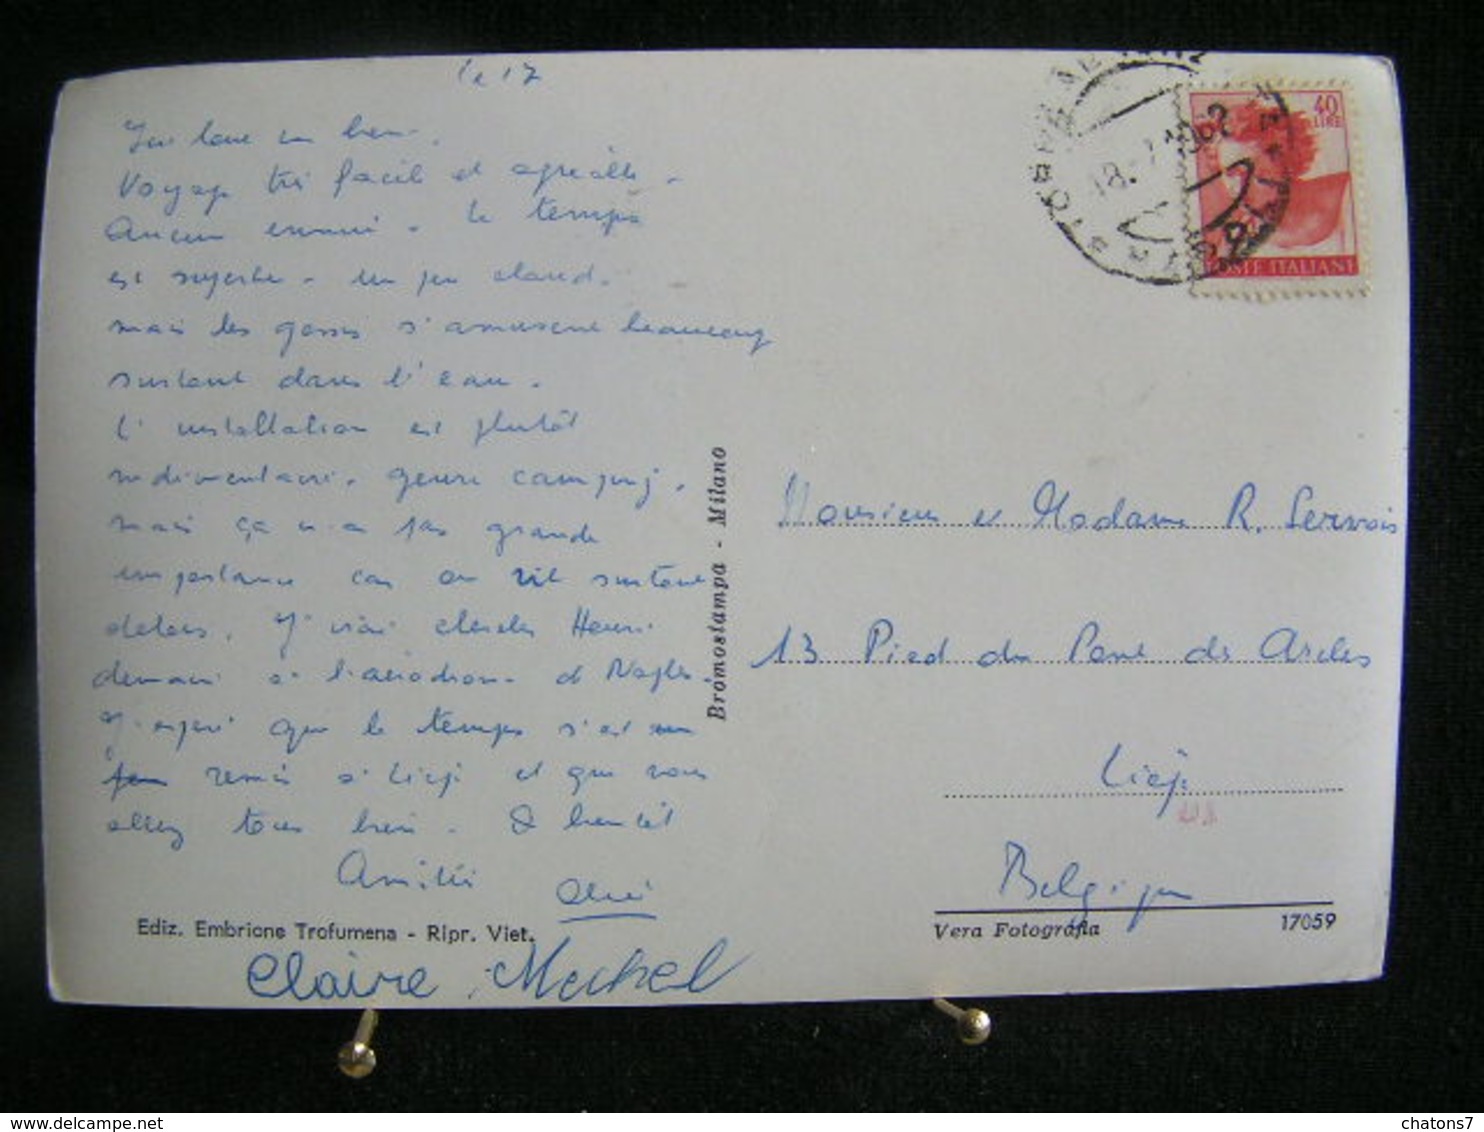 le 17
tout va bien.
Voyage très facile et agréable.
Aucun ennui. Le temps
est superbe. un peu chaud.
mais les gosses s'amusent beaucoup
surtout dans l'eau.
L'installation est plutôt
rudimentaire. genre camping.
mais ça n'a pas grande
importance car on vit surtout
dehors. J'irai chercher Henri
demain à l'aérodrome de Naples.
J'espère que le temps s'est un
peu remis à Liège et que vous
allez tous bien. A bientôt
Amitiés
Claire Michel
Ediz. Embrione Trofumena - Ripr. Viet.
Bromostampa - Milano
40
LIRE
POSTE ITALIANE
Monsieur et Madame R. Servais
13 Pied du Pont des Arches
Liège
Belgique
Vera Fotografia 17059
chatons7
delcampe.net